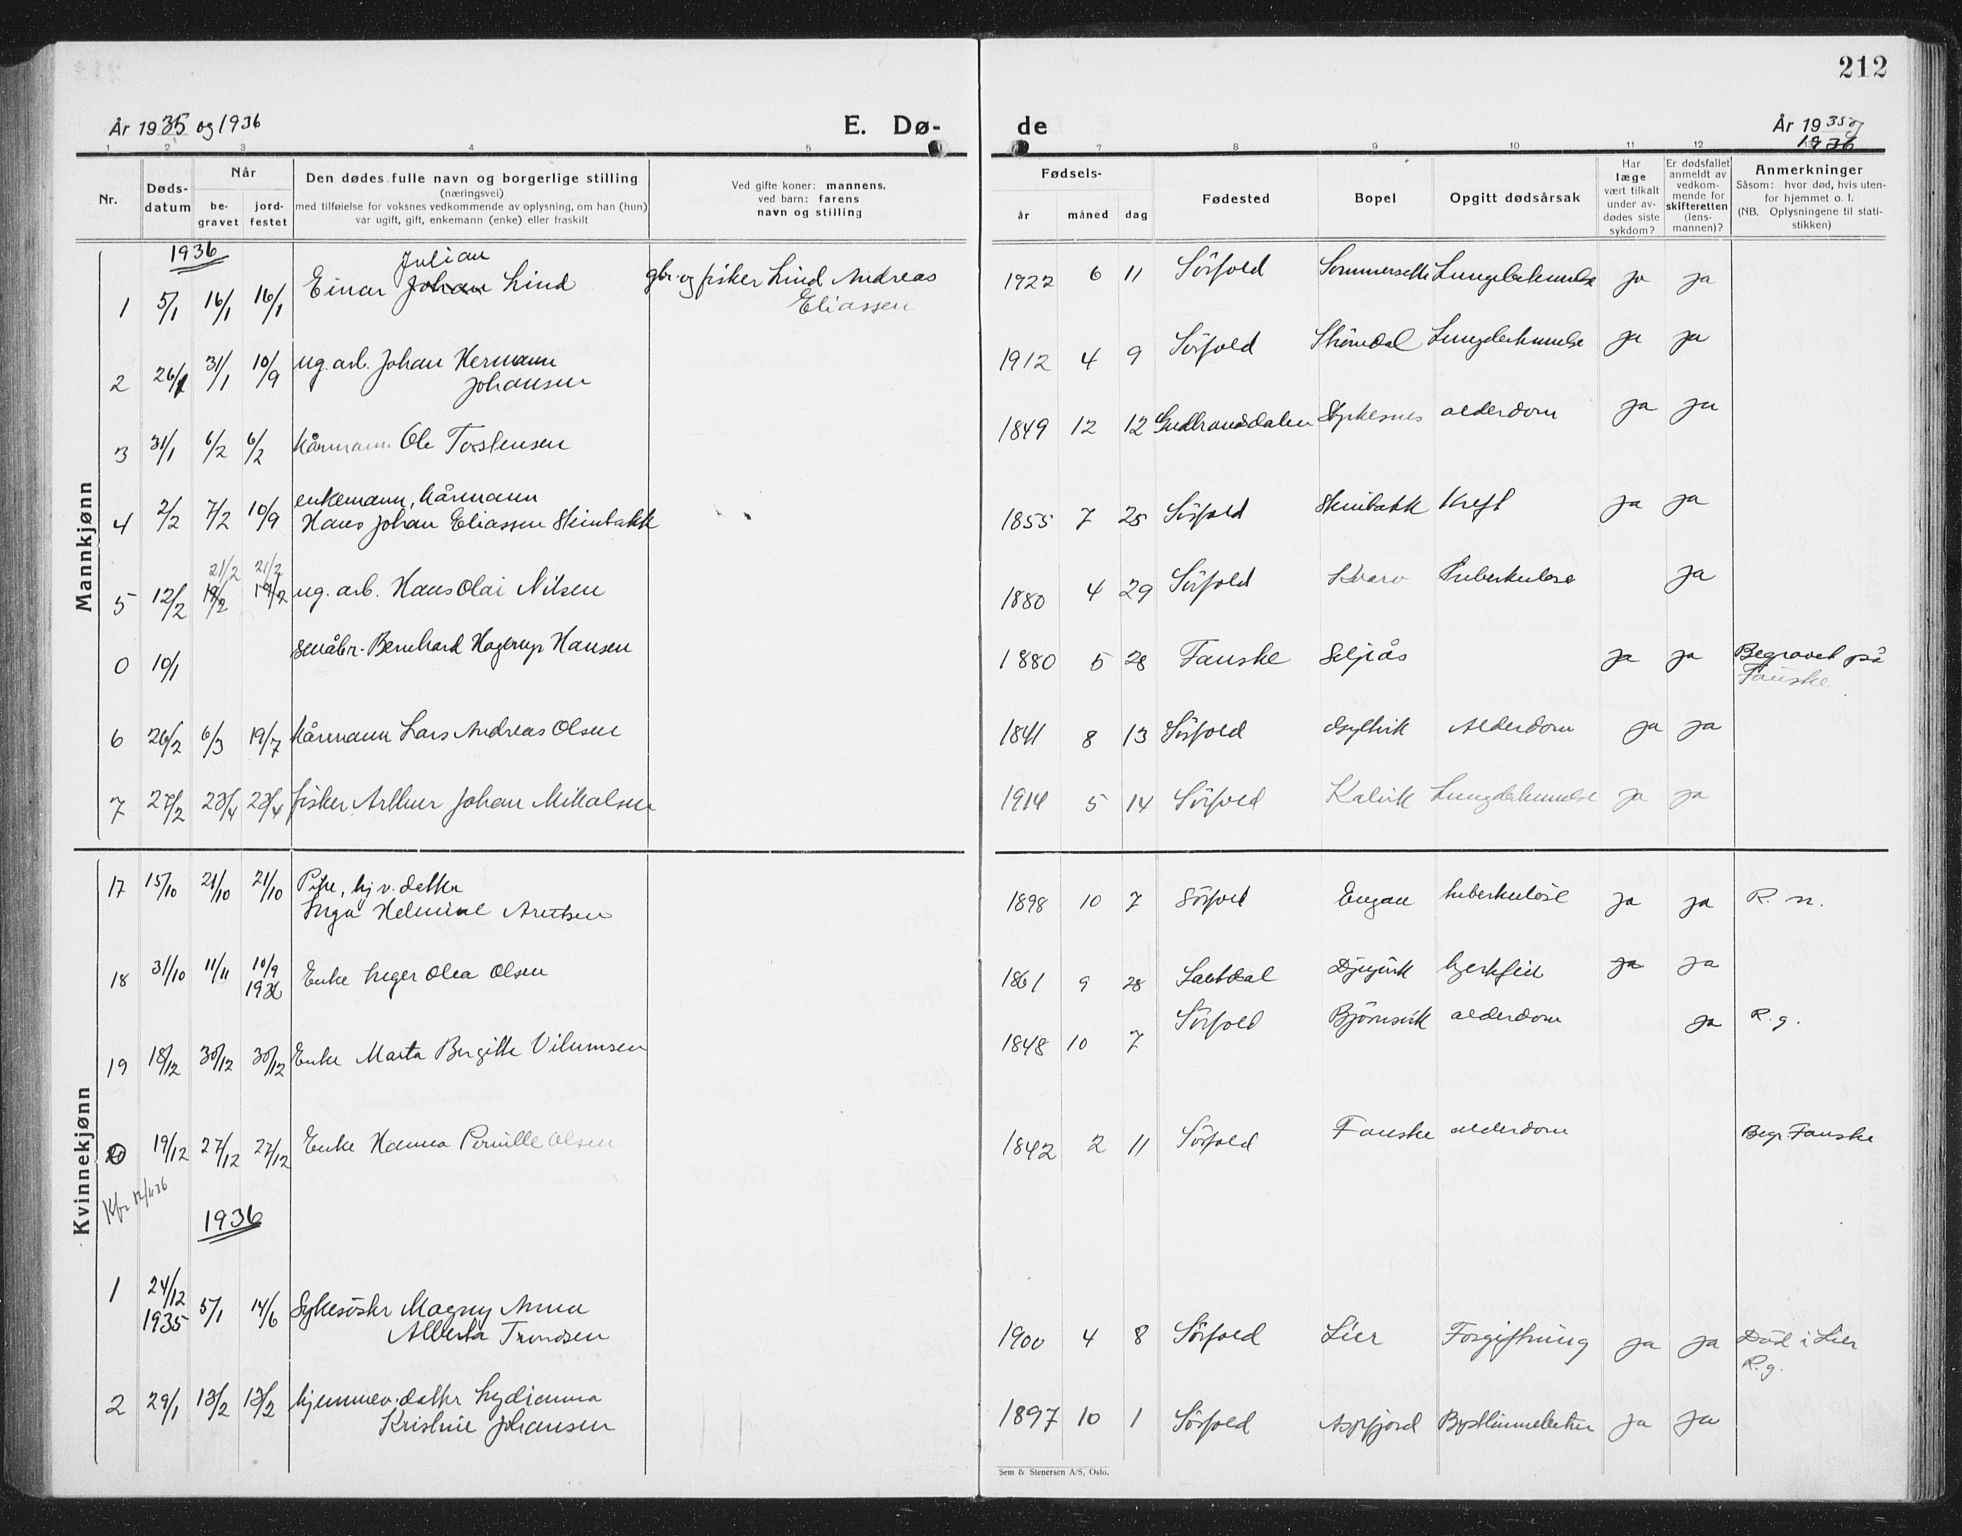 212
År 1935 og 1936 E. Dø- de År 1935 og
1936
1 2 3 4 5 7 8 9 10 11 12
Nr. Døds-datum Når be-gravet jord-festet
Den dødes fulle navn og borgerlige stilling
(næringsvei)
med tilføielse for voksnes vedkommende av oplysning, om han (hun)
var ugift, gift, enkemann (enke) eller fraskilt
Ved gifte koner: mannens.
ved barn: farens
navn og stilling
Fødsels- år måned dag Fødested Bopel Opgitt dødsårsak
Har læge vært tilkalt under av-dødes siste sykdom?
Er dødsfallet anmeldt av vedkom-mende for skifteretten (lens-mannen)?
Anmerkninger
Såsom: hvor død, hvis uten-
for hjemmet o. l.
(NB. Oplysningene til stati-
stikken)
Mannkjønn
1936
Julian
1 5/1 16/1 16/1 Einar Johan Lind gbr. og fisker Lind Andreas 1922 6 11 Sörfold Sommersette Lungebetennelse ja ja
Eliassen
2 26/1 31/1 10/9 ug. arb. Johan Hermann 1912 4 9 Sörfold ja ja
Johansen
3 31/1 6/2 6/2 kårmann Ole Torstensen 1849 12 12 Gudbrandsdalen Styrkesnes alderdom ja ja
enkemann, kårmann
4 2/2 7/2 10/9 Hans Johan Eliassen Steinbakk 1855 7 25 Sörfold Steinbakk Kreft ja ja
21/2 21/2
5 12/2 19/2 19/2 ug. arb. Hans Olai Nilsen 1880 4 29 Sörfold Kvarv Tuberkulose ja
0 10/1 småbr. Bernhard Hagerup Hansen 1880 5 28 Fauske Seljås ja ja Begravet på
Fauske
6 26/2 6/3 19/7 kårmann Lars Andreas Olsen 1841 8 13 Sörfold Gyltvik Alderdom ja ja
7 27/2 23/4 23/4 fisker Arthur Johan Mikalsen 1914 5 14 Sörfold Kalvik Lungebetennelse ja ja
Kvinnekjønn
17 15/10 21/10 21/10 Pike, hj v. datter
Inga Helmine Arntsen 1898 10 7 Sörfold Engan tuberkulose ja ja R. n.
18 31/10 11/11 10/9 1936 Enke Inger Olea Olsen 1861 9 28 Saltdal Djupvik hjertefeil ja ja
19 18/12 30/12 30/12 Enke Marta Bergitte Vilumsen 1848 10 7 Sörfold Björnsvik alderdom ja R. g.
0 19/12 27/12 27/12 Enke Hanna Pernille Olsen 1842 2 11 Sörfold Fauske alderdom Begr. Fauske
1936
1 24/12 1935 5/1 14/6 Sykesöster Magny Anna
Alberta Trondsen 1900 4 8 Sörfold Lier Forgiftning ja ja Död i Lier
R. g.
2 29/1 13/2 13/2 hjemmev. datter Lydianna
Kristine Johansen 1897 10 1 Sörfold Aspfjord ja ja
Sem & Stenersen A/S, Oslo.